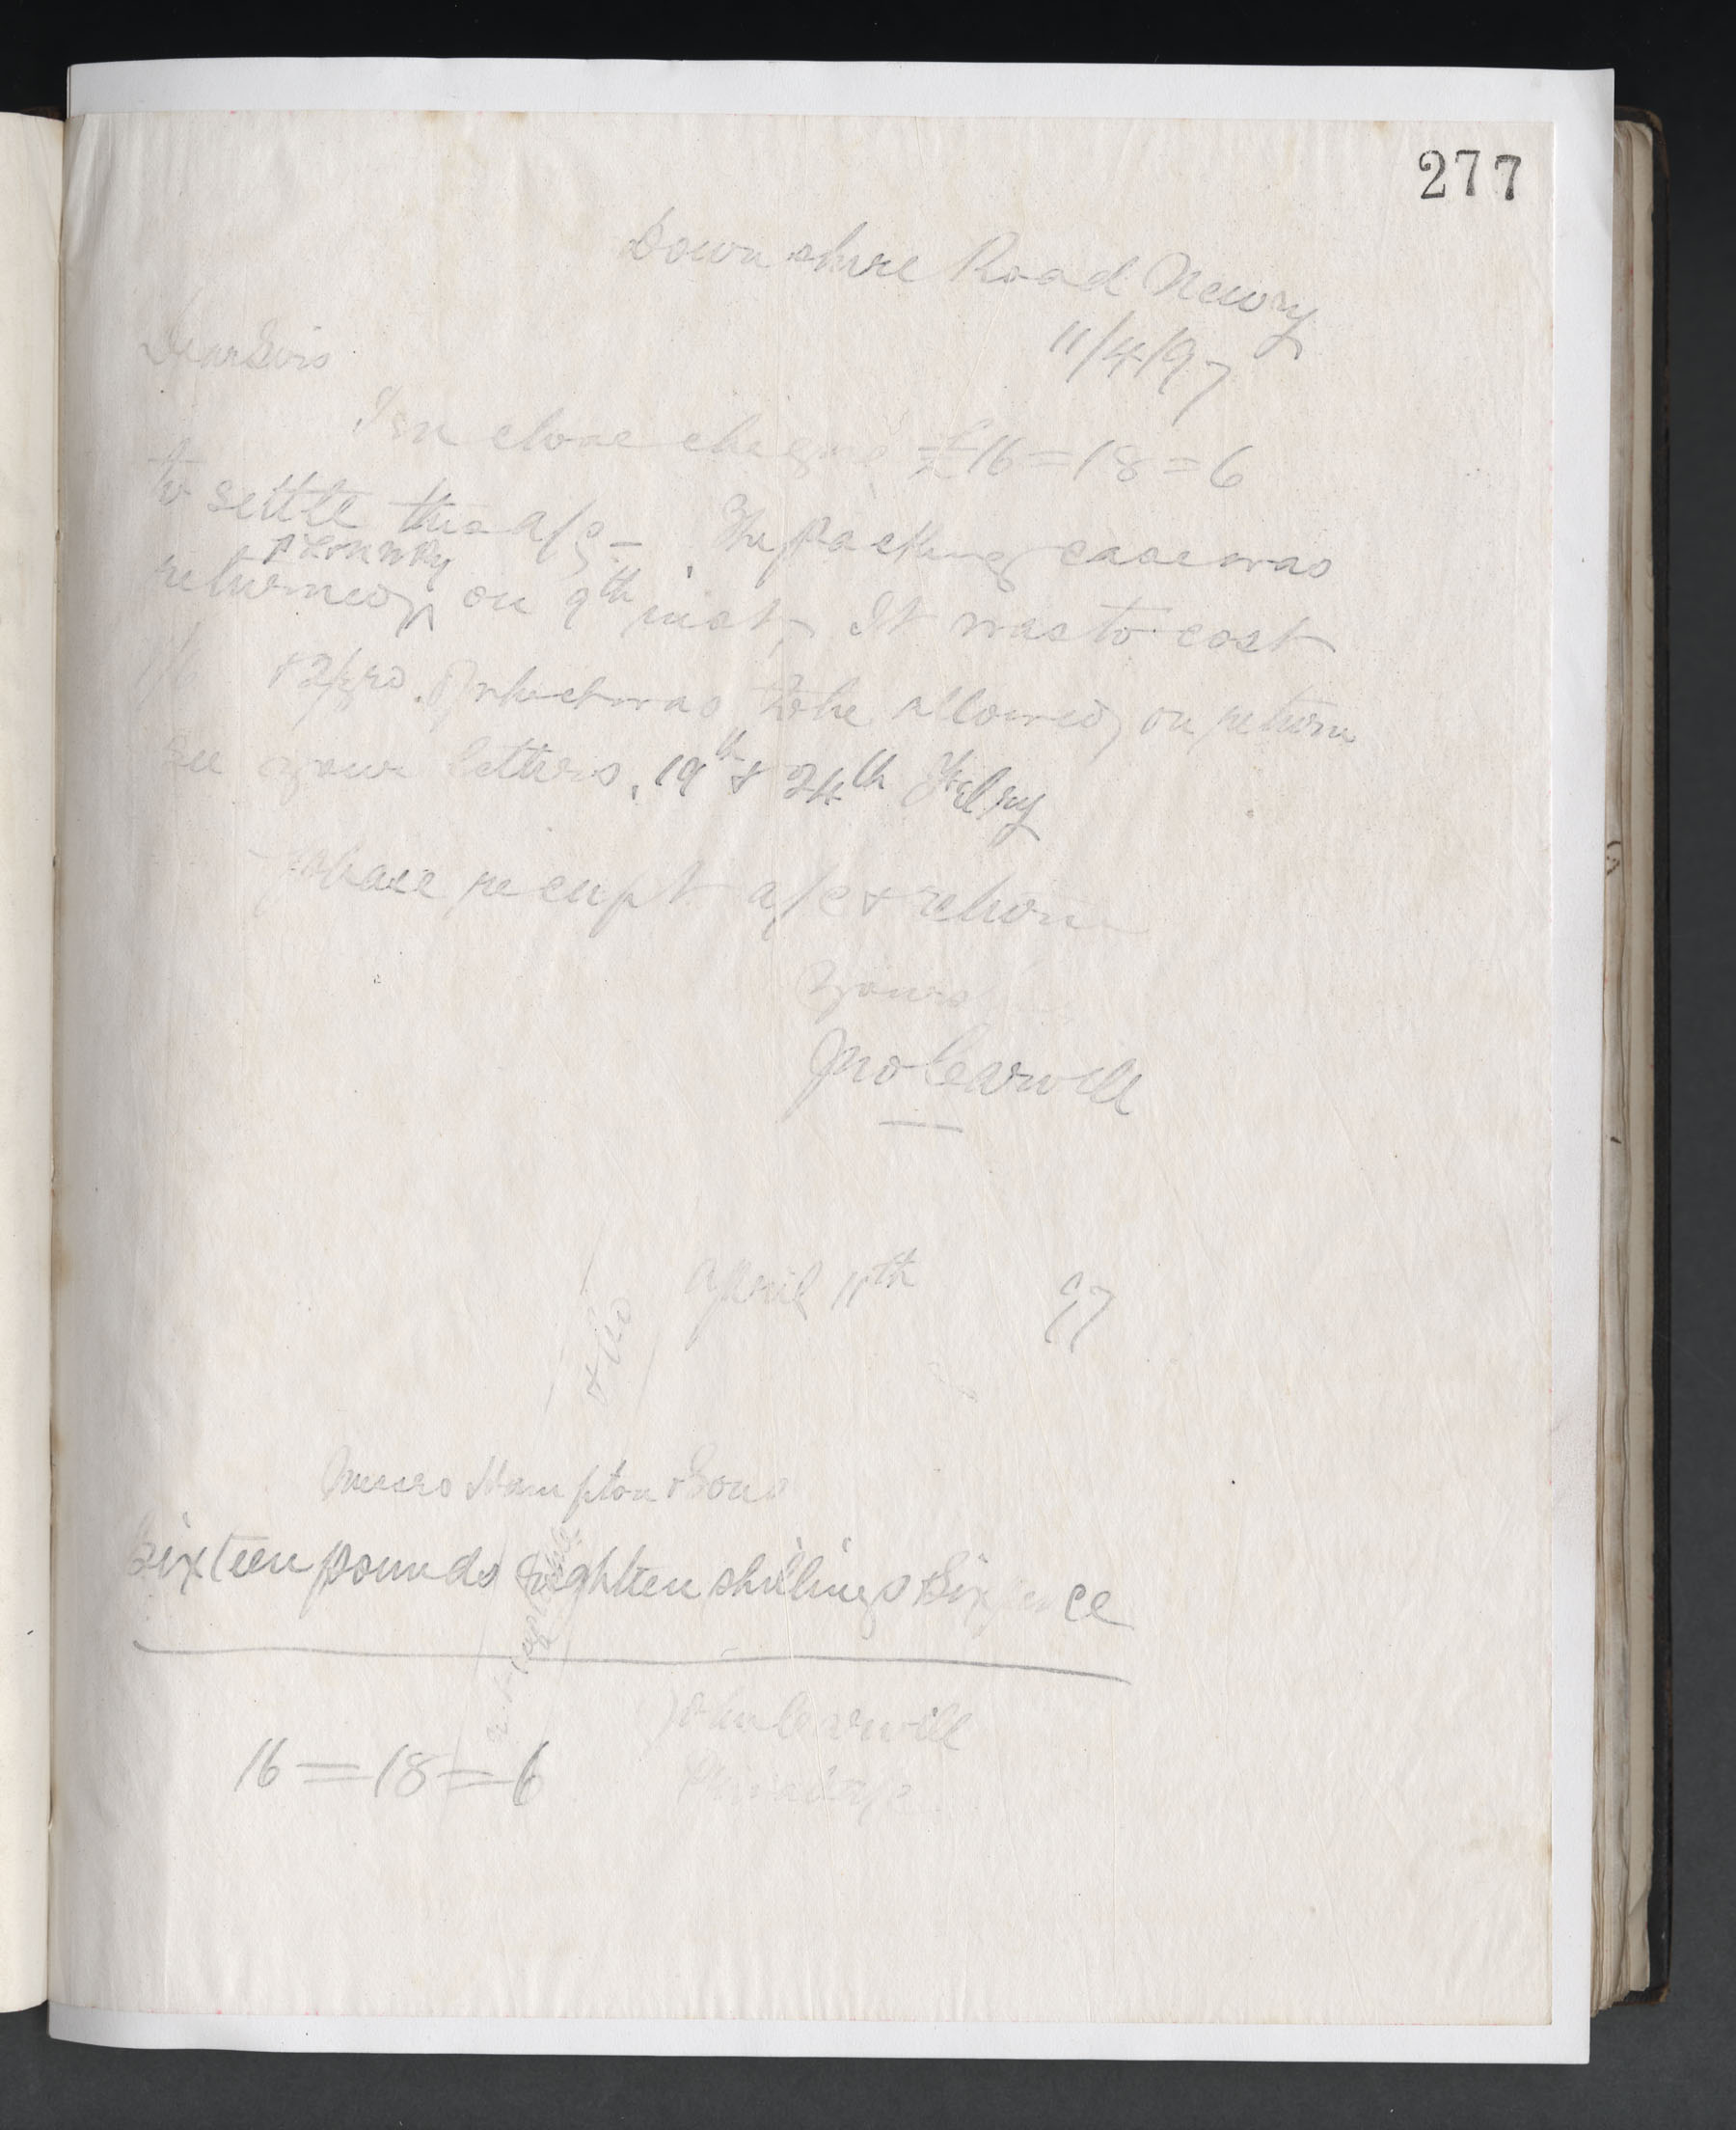 277
Downshire Road Newry
11/4/97
Dear Sirs
I enclose cheque £16=18=6
to settle this a/c – The packing case was
returned on 9th inst, It was to cost
7/6 & 2/3rd. of which was to be allowed, on return
See your letters, 19th & 24th Febry
please receipt a/c & return
Yours
Jno Carvill
April 11th 97
& Co
Messrs Hampton & Sons
Sixteen pounds Eighteen shillings & Sixpence
16=18=6
John Carvill
Private a/c